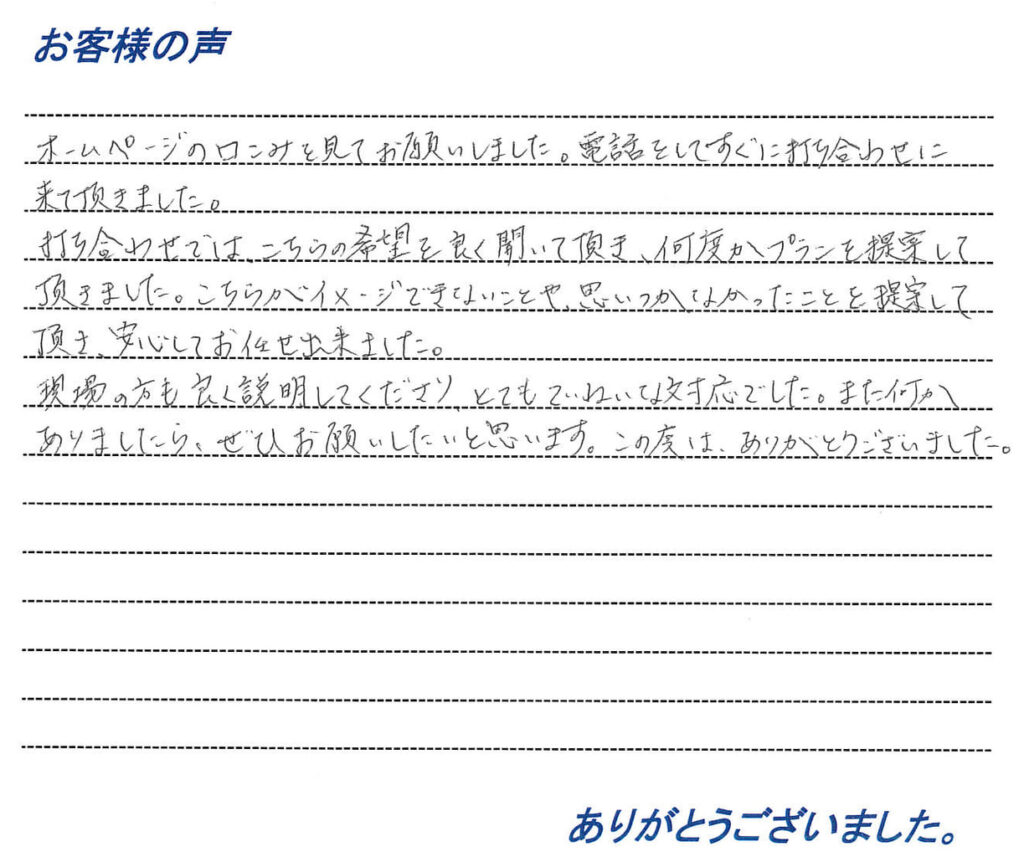 お客様の声
ホームページの口こみを見てお願いしました。電話をしてすぐに打ち合わせに
来て頂きました。
打ち合わせでは、こちらの希望を良く聞いて頂き、何度かプランを提案して
頂きました。こちらがイメージできないことや、思いつかなかったことを提案して
頂き、安心してお任せ出来ました。
現場の方も良く説明してくださり、とてもていねいな対応でした。また何か
ありましたら、ぜひお願いしたいと思います。この度は、ありがとうございました。
ありがとうございました。